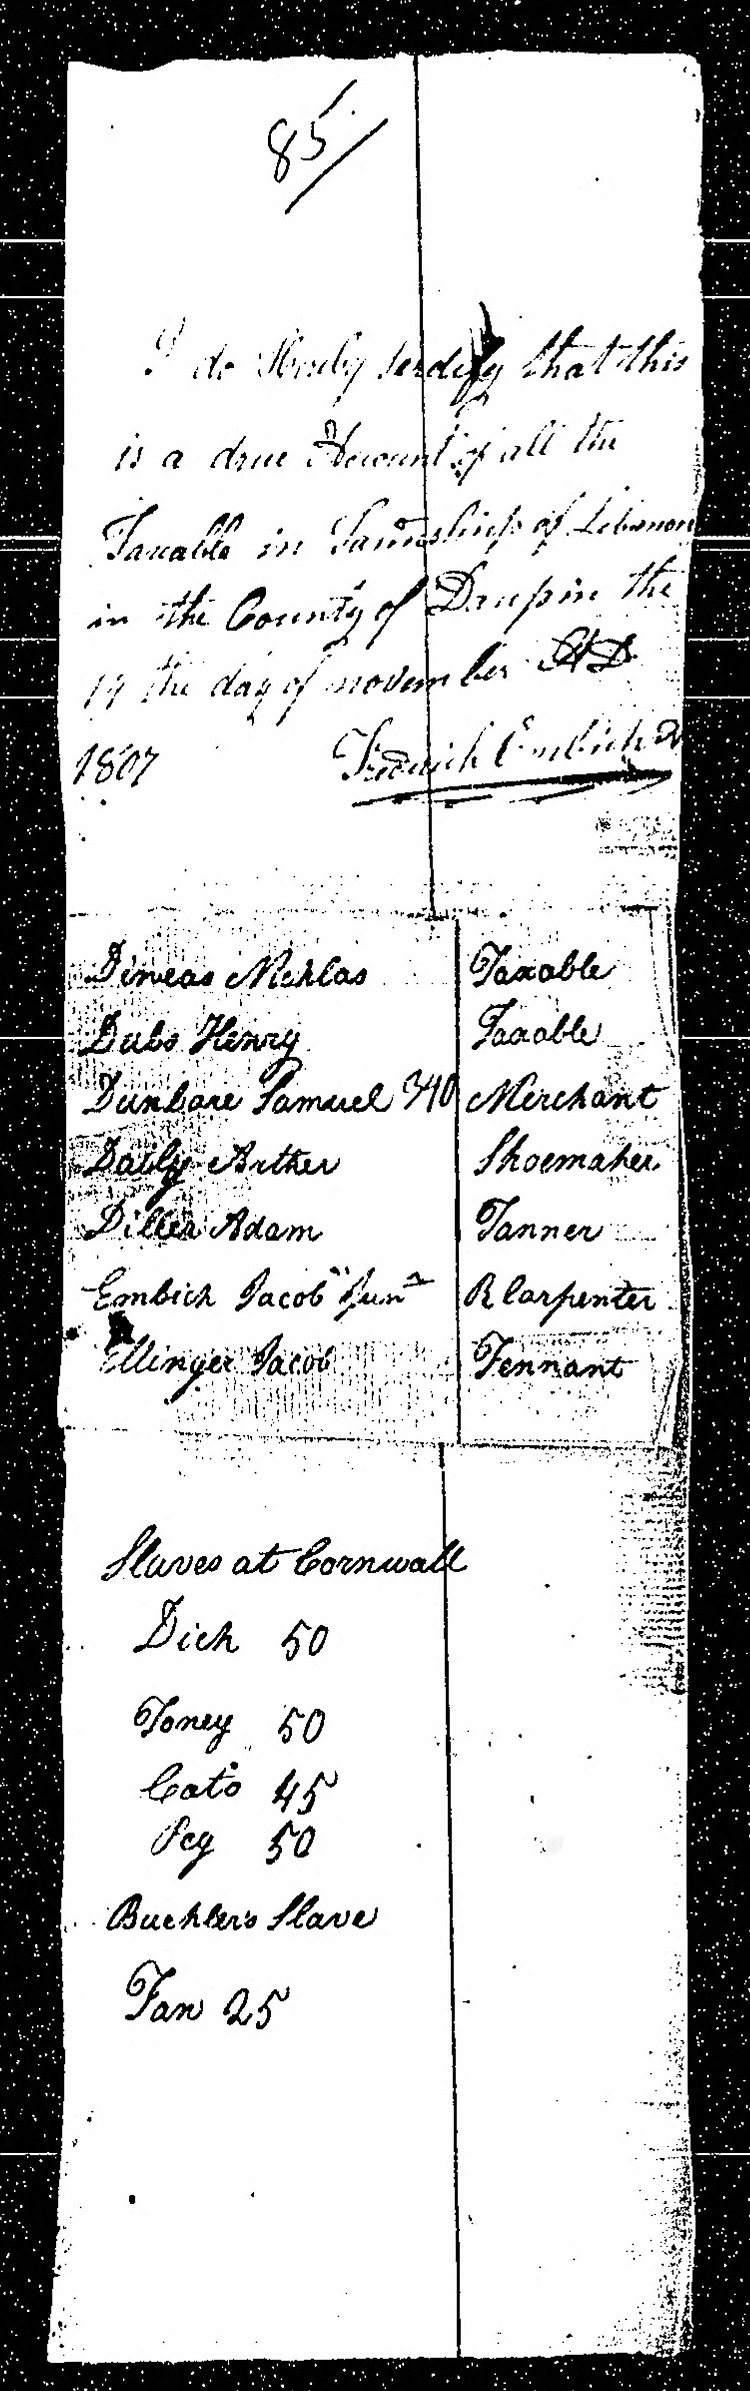 85
I do Hereby serdify that this
is a drue Account of all the
Taxable in Townshiup of Lebanon
in the County of Daupin the
19 the day of november AD
1807 Fredrich Embich
Dineas Nicklas Taxable
Dubs Henry Taxable
Dunbare Samuel 340 Merchant
Daily Arther Shoemaker
Diller Adam Tanner
Embich Jacob Junr R Carpenter
Ellinger Jacob Tennant
Slaves at Cornwall
Dick 50
Toney 50
Cato 45
Peg 50
Buehler's Slave
Fan 25